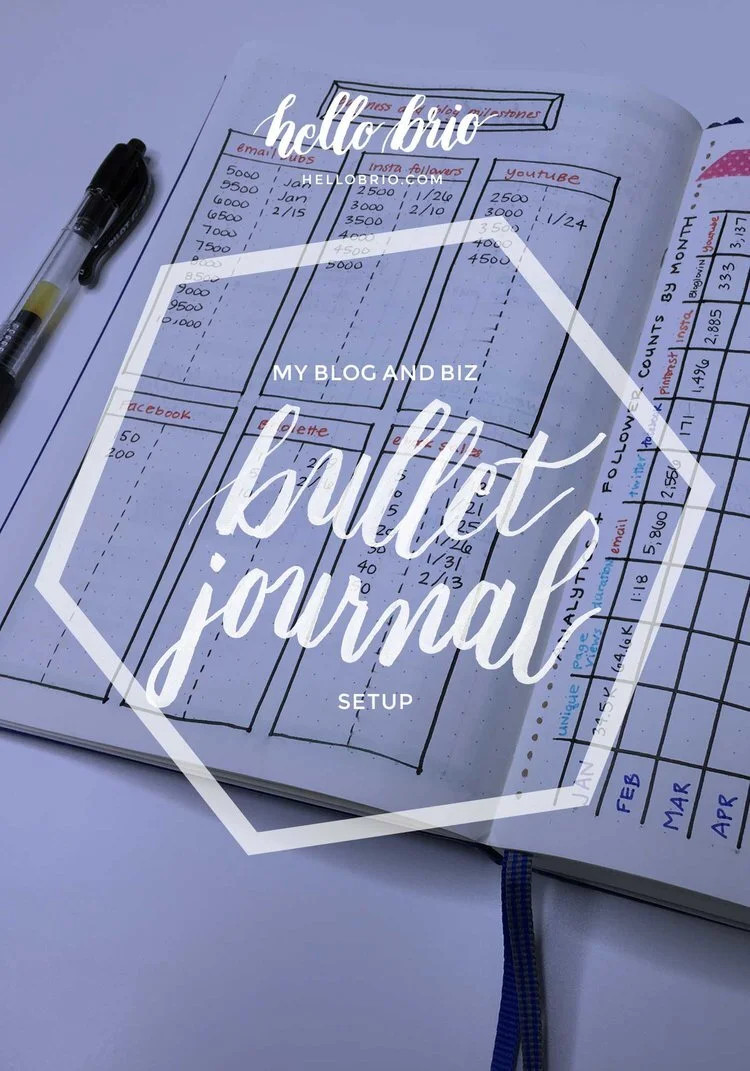 hello brio
HELLOBRIO.COM
MY BLOG AND BIZ
bullet
journal
SETUP
blog milestones
email subs
5000 Jan
5500 Jan
6000 2/15
6500
7000
7500
8000
8500
9000
9500
10,000
insta followers
2500 1/26
3000 2/10
3500
4000
4500
5000
youtube
2500
3000 1/24
3500
4000
4500
Facebook
150
200
1/31
40 2/13
ANALYTICS + FOLLOWER COUNTS BY MONTH
unique
page views
duration
email
twitter
facebook
pinterest
insta
Bloglovin
youtube
JAN 34.5K 64.6K 1:18 5,860 2,556 171 1,496 2,885 333 3,137
FEB
MAR
APR